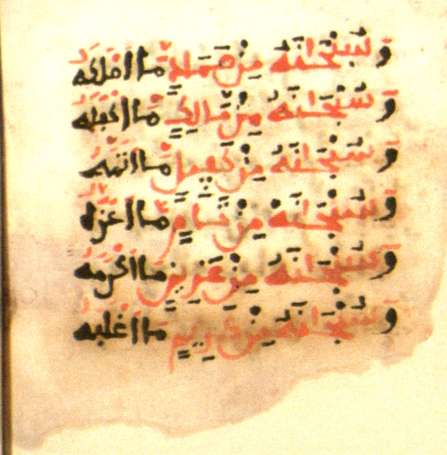 وسبحانه من صمد ما املكه
وسبحانه من مالك ما اكفله
وسبحانه من كفيل ما اتمه
وسبحانه من تام ما اعزه
وسبحانه من عزيز ما اكرمه
وسبحانه من كريم ما اغلبه